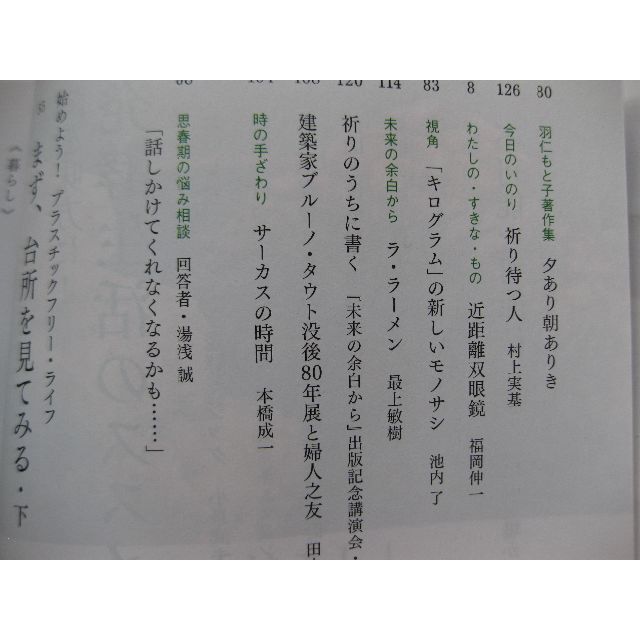 80 羽仁もと子著作集 夕あり朝ありき
126 今日のいのり 祈り待つ人 村上実基
8 わたしの・すきな・もの 近距離双眼鏡 福岡伸一
83 視角 「キログラム」の新しいモノサシ 池内了
114 未来の余白から ラ・ラーメン 最上敏樹
120 祈りのうちに書く 「未来の余白から」出版記念講演会・
建築家ブルーノ・タウト没後80年展と婦人之友 田
時の手ざわり サーカスの時間 本橋成一
思春期の悩み相談 回答者・湯浅誠
「話しかけてくれなくなるかも……」
始めよう！プラスチックフリー・ライフ
まず、台所を見てみる・下
〈暮らし〉